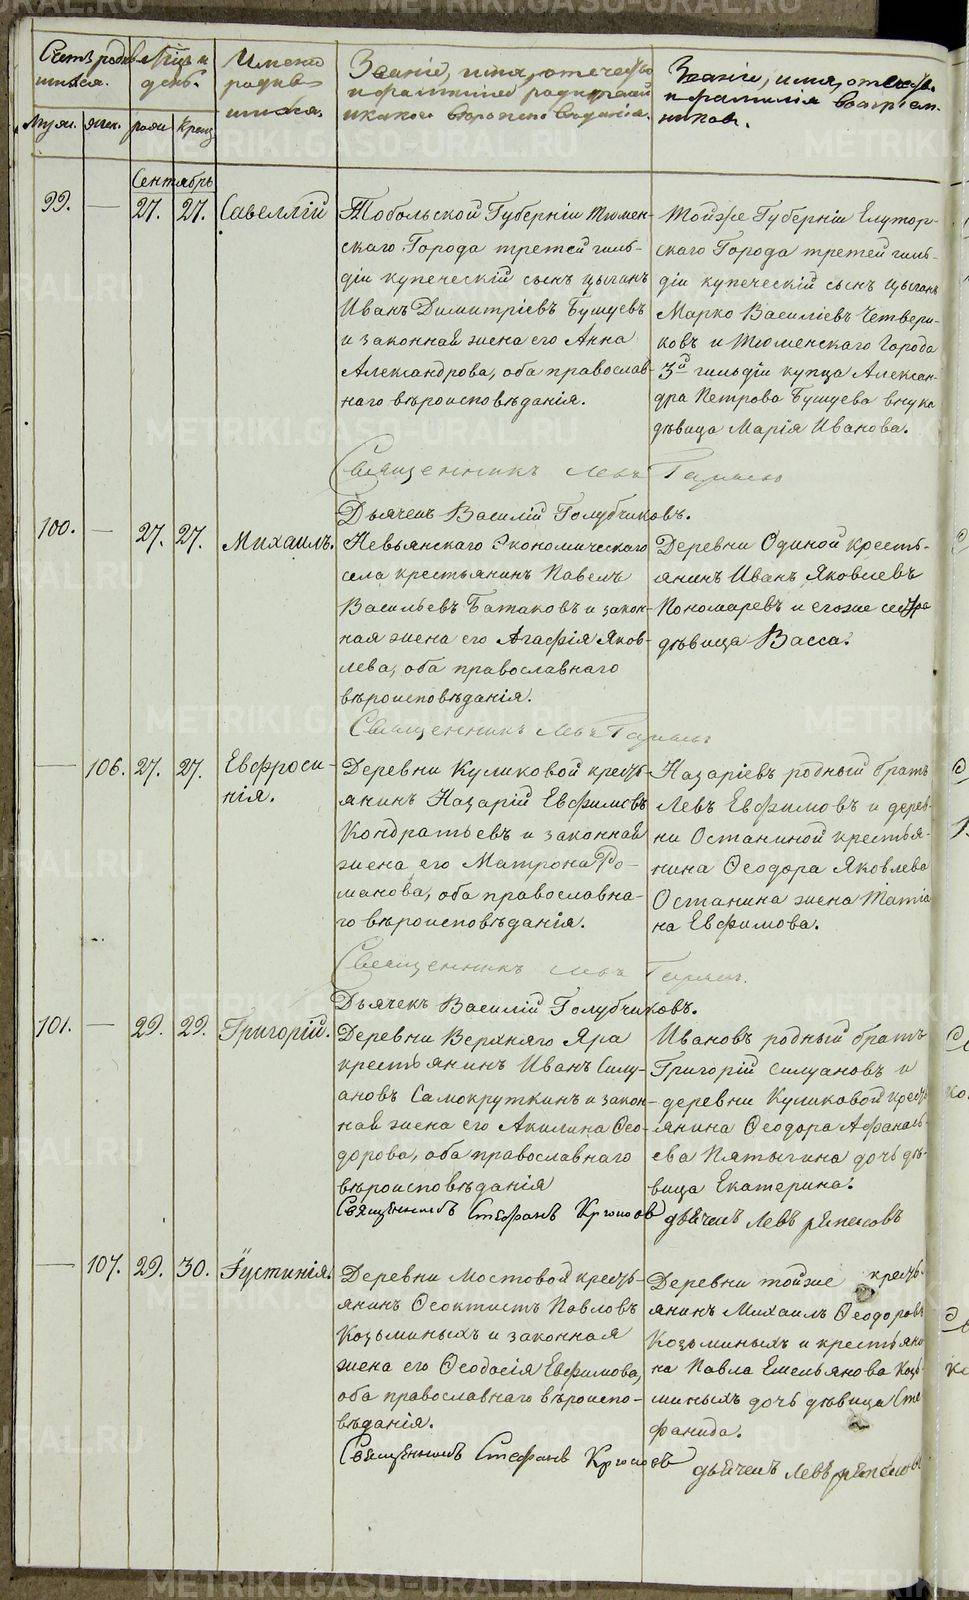 Счетъ родив-
шихся.
Мѣсяцъ и
день.
Имена
родив-
шихся.
Званіе, имя, отечество
и фамилія родителей
и какого вѣроисповѣданія.
Званіе, имя, отечество
и фамилія воспріем-
никовъ.
Муж. Жен. рожд. Крещ.
Сентябрь
99. — 27. 27. Савеллій
Тобольской Губерніи Тюмен-
скаго Города третей гиль-
діи купеческій сынъ цыганъ
Иванъ Димитріевъ Бушуевъ
и законная жена его Анна
Александрова, оба православ-
наго вѣроисповѣданія.
Тойже Губерніи Елутор-
скаго Города третей гиль-
діи купеческій сынъ цыганъ
Марко Василіевъ Четвери-
ковъ и Тюменскаго Города
3й гильдіи купца Алексан-
дра Петрова Бушуева внука
дѣвица Марія Иванова.
Священникъ Левъ
Дьячекъ Василій Голубчиковъ.
100. — 27. 27. Михаилъ.
Невьянскаго Экономическаго
села крестьянинъ Павелъ
Васильевъ Батаковъ и закон-
ная жена его Агафія Яков-
лева, оба православнаго
вѣроисповѣданія.
Деревни Одиной кресть-
янинъ Иванъ Яковлевъ
Пономаревъ и егоже сестра
дѣвица Васса.
Священникъ Левъ
— 106. 27. 27. Евфроси-
нія.
Деревни Куликовой кресть-
янинъ Назарій Евфимовъ
Кондратьевъ и законная
жена его Матрона Ро-
манова, оба православна-
го вѣроисповѣданія.
Назаріевъ родный братъ
Левъ Евфимовъ и дерев-
ни Останиной крестья-
нина Ѳеодора Яковлева
Останина жена Татіа
на Евфимова.
Священникъ Левъ
Дьячекъ Василій Голубчиковъ.
101. — 29. 29. Григорій.
Деревни Верхняго Яра
крестьянинъ Иванъ Силу-
ановъ Самокруткинъ и закон-
ная жена его Акилина Ѳео-
дорова, оба православнаго
вѣроисповѣданія
Ивановъ родный братъ
Григорій Силуановъ и
деревни Куликовой кресть-
янина Ѳеодора Афанась-
ева Пятыгина дочь дѣ-
вица Екатерина.
Священникъ Стефанъ дьячекъ Левъ
— 107. 29. 30. Іустинія.
Деревни Мостовой кресть-
янинъ Ѳеоктистъ Павловъ
Козьминыхъ и законная
жена его Ѳеодосія Евфимова,
оба православнаго вѣроиспо-
вѣданія.
Деревни тойже кресть-
янинъ Михаилъ Ѳеодоровъ
Козьминыхъ и крестьяни
на Павла Емельянова Козь-
миныхъ дочь дѣвица Сте
фанида.
Священникъ Стефанъ дьячекъ Левъ
METRIKI.GASO-URAL.RU